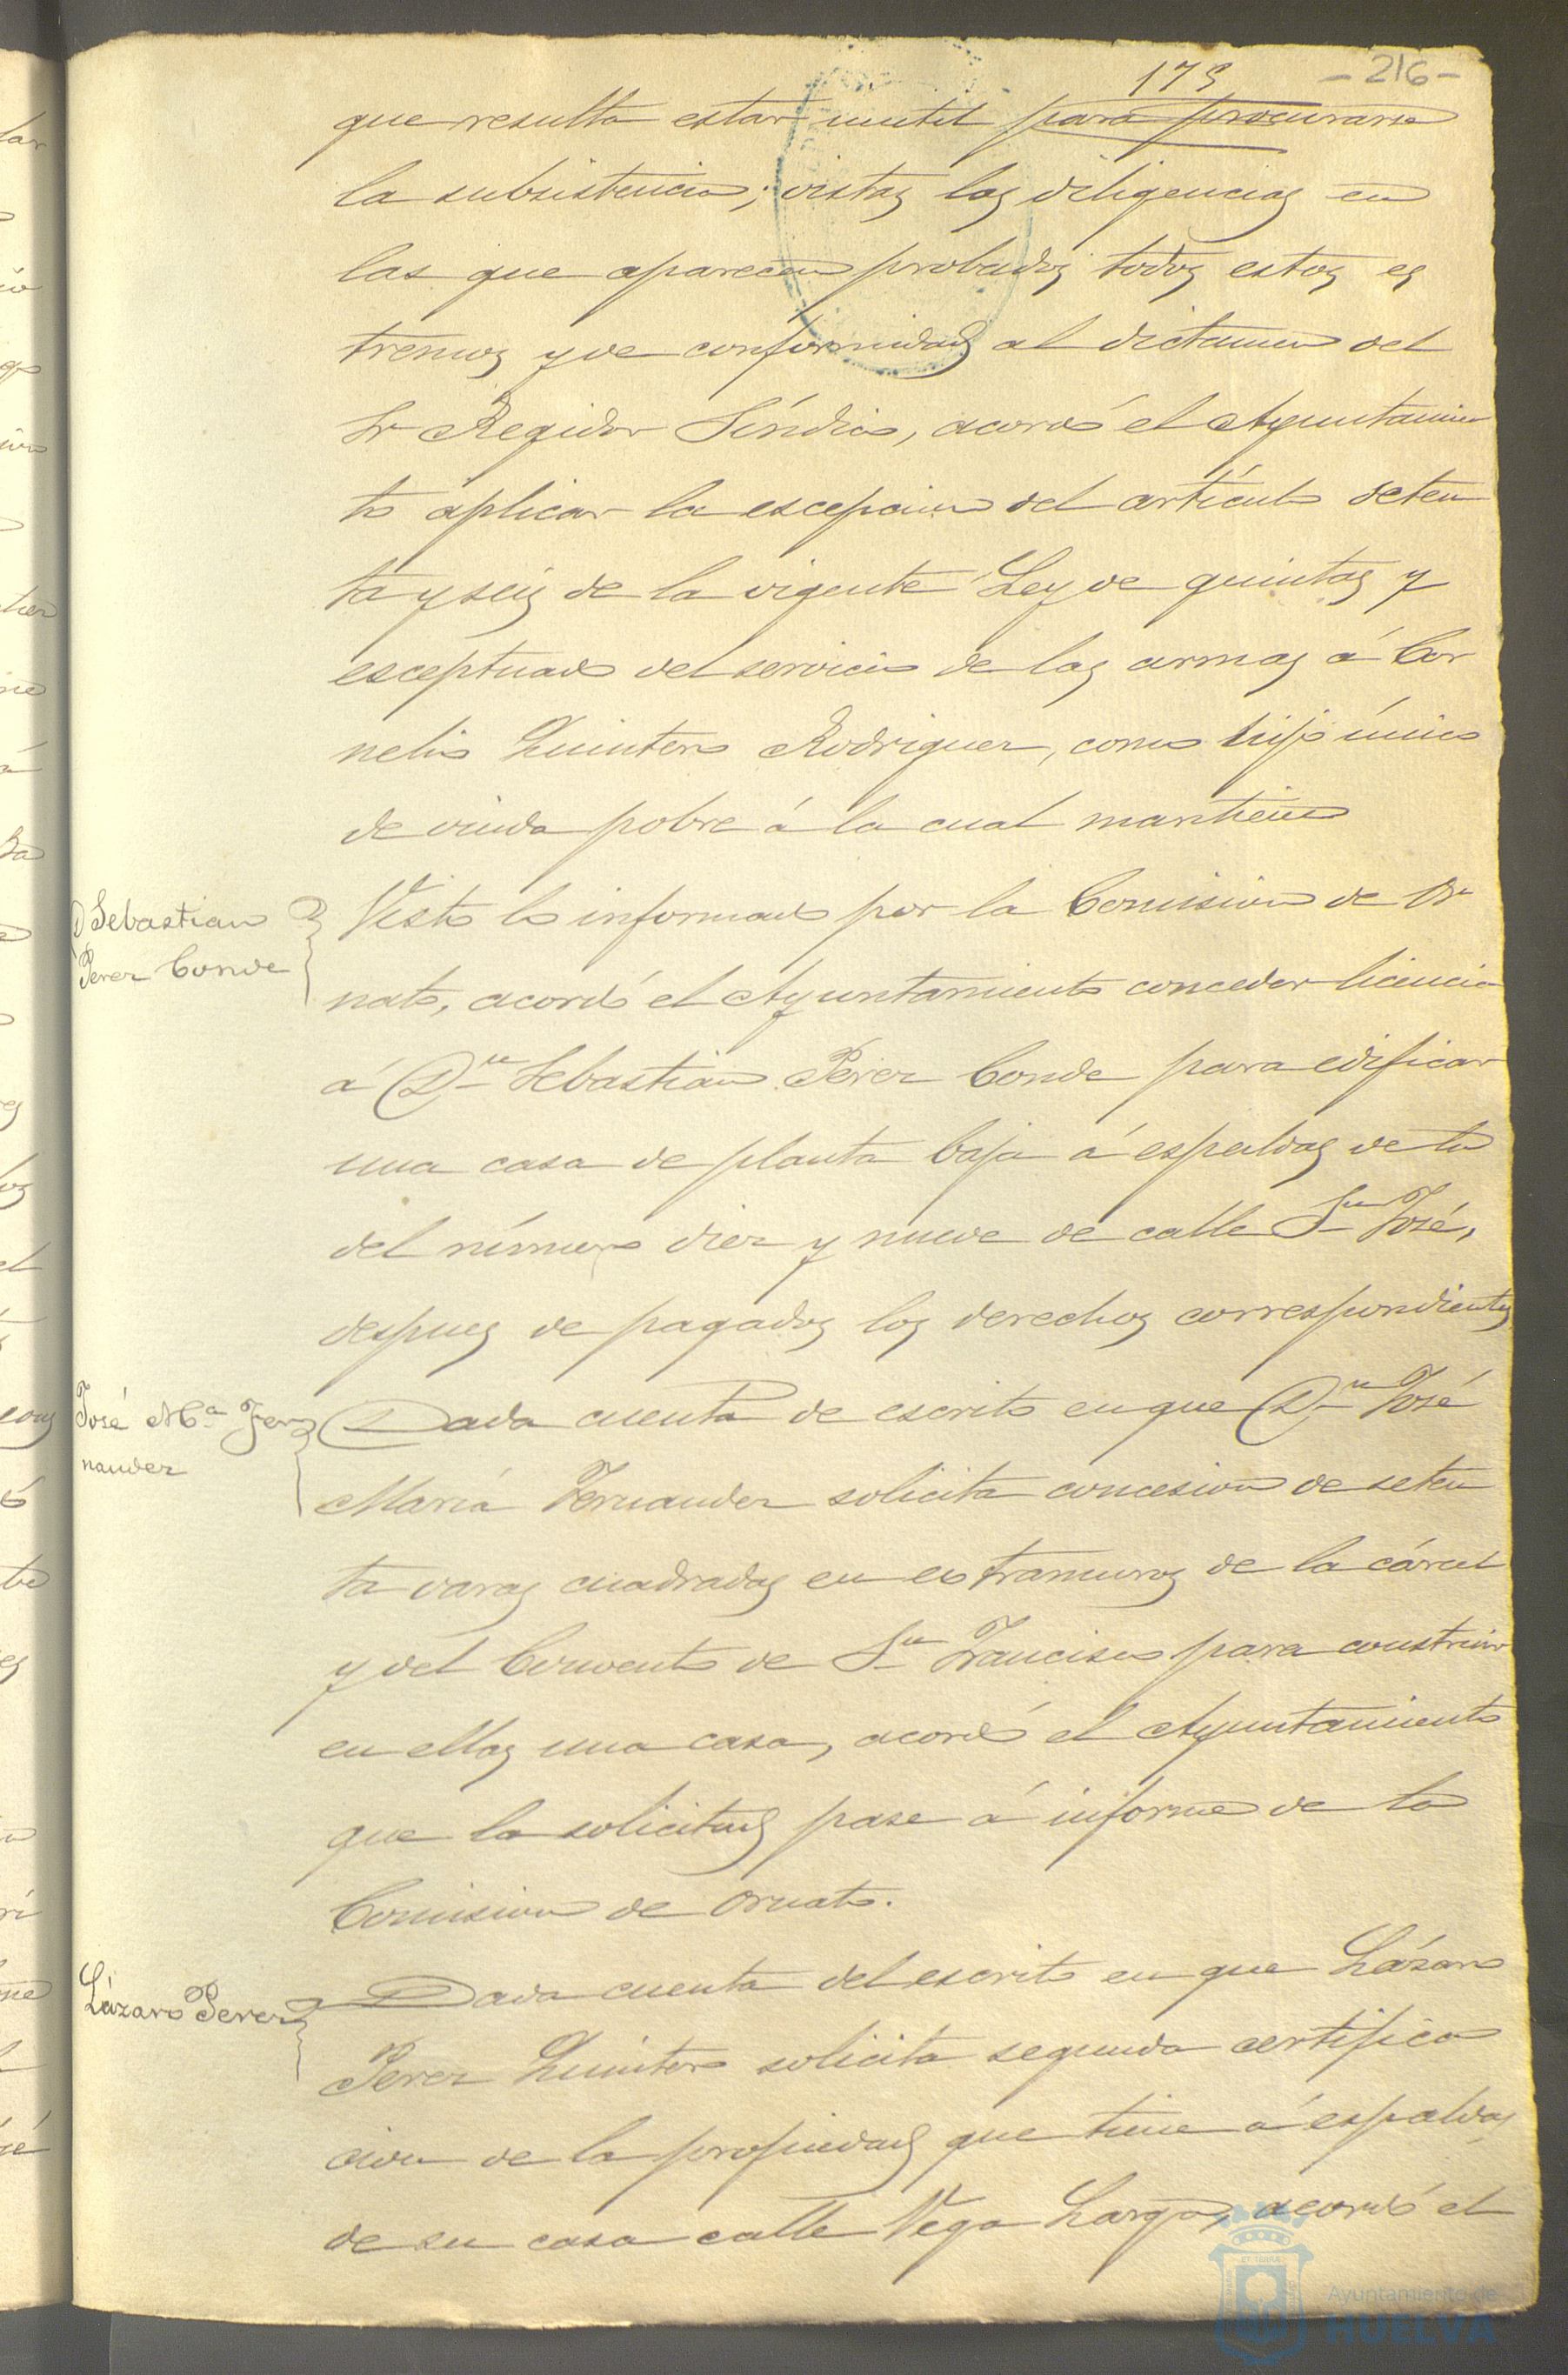 173 - 216 -
que resulta estar inutil para procurarse
la subsistencia; vistas las diligencias en
las que aparecen probados todos estos es
tremos y de conformidad al dictamen del
Sr Regidor Síndico, acordó el Ayuntamien
to aplicar la escepcion del artículo seten
ta y seis de la vigente Ley de quintas y
esceptuado del servicio de las armas á Cor
nelio Quintero Rodriguez, como hijo único
de viuda pobre á la cual mantiene
D Sebastian
Perez Conde
Visto lo informado por la Comision de Or
nato, acordó el Ayuntamiento conceder licencia
á Dn Sebastian Perez Conde para edificar
una casa de planta baja á espaldas de la
del número diez y nueve de calle Sn José,
despues de pagados los derechos correspondientes
José Ma Fer
nandez
Dada cuenta de escrito en que Dn José
María Fernandez solicita concesion de seten
ta varas cuadradas en extramuros de la cárcel
y del Convento de Sn Francisco para construir
en ellas una casa, acordó el Ayuntamiento
que la solicitud pase á informe de la
Comision de Ornato.
Lázaro Perez
Dada cuenta del escrito en que Lázaro
Perez Quintero solicita segunda certifica
cion de la propiedad que tiene á espaldas
de su casa calle Vega Larga, acordó el
Ayuntamiento de
HUELVA